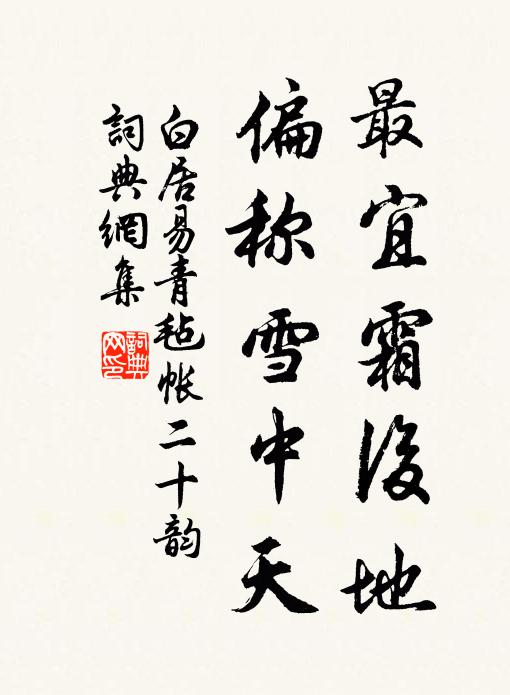 最宜霜後地
偏称雪中天
白居易青毡帐二十韵
詞典網集
詞典
网印